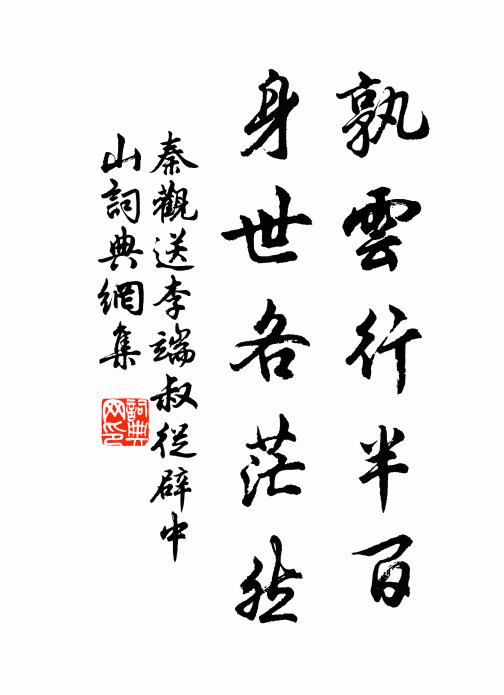 孰雲行半百
身世各茫然
秦觀送李端叔從辟中
山詞典網集
詞典网印